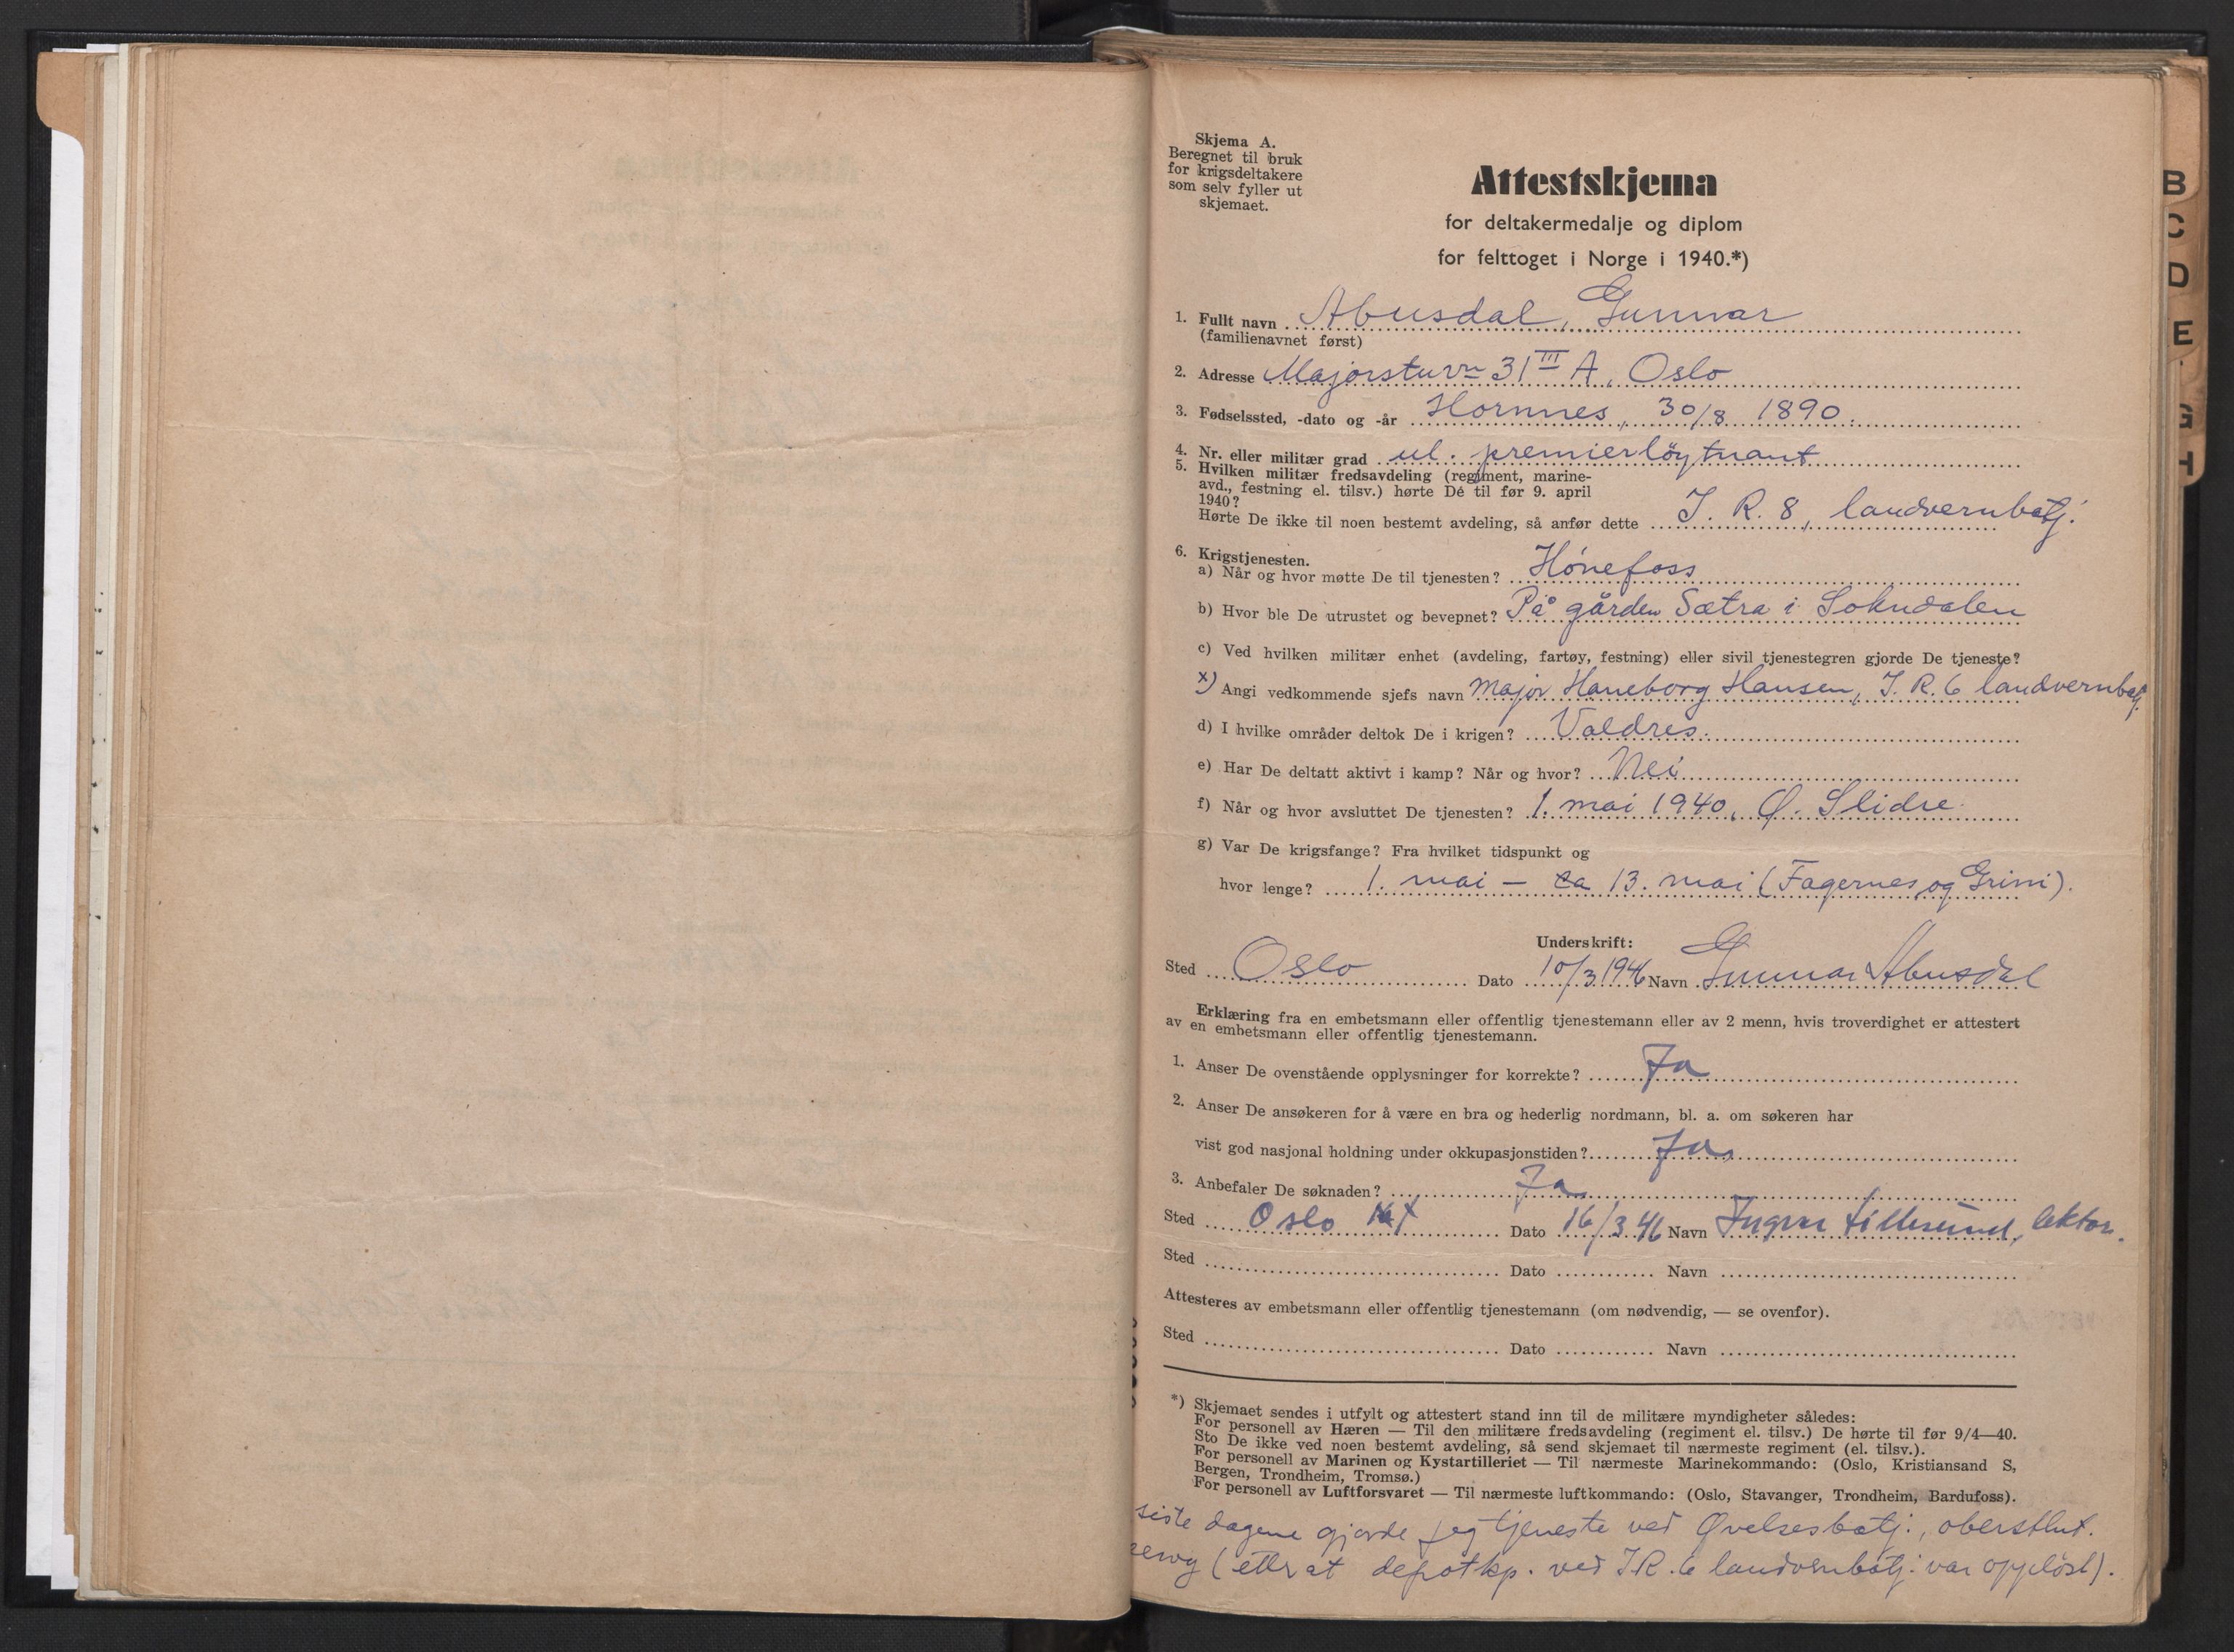 Skjema A.
Beregnet til bruk
for krigsdeltakere
som selv fyller ut
skjemaet.
Attestskjema
for deltakermedalje og diplom
for felttoget i Norge i 1940.*)
1. Fullt navn Abusdal, Gunnar
(familienavnet først)
2. Adresse Majorstuvn 31 III A, Oslo
3. Fødselssted, -dato og -år Hornnes, 30/8 1890.
4. Nr. eller militær grad ul. premierløytnant
5. Hvilken militær fredsavdeling (regiment, marine-
avd., festning el. tilsv.) hørte De til før 9. april
1940?
Hørte De ikke til noen bestemt avdeling, så anfør dette J. R. 8, landvernbatj.
6. Krigstjenesten.
a) Når og hvor møtte De til tjenesten? Hønefoss
b) Hvor ble De utrustet og bevepnet? På gården Sætra i Sokndalen
c) Ved hvilken militær enhet (avdeling, fartøy, festning) eller sivil tjenestegren gjorde De tjeneste?
x) Angi vedkommende sjefs navn Major Haneborg Hansen, J. R. 6 landvernbatj.
d) I hvilke områder deltok De i krigen? Valdres.
e) Har De deltatt aktivt i kamp? Når og hvor? Nei
f) Når og hvor avsluttet De tjenesten? 1. mai 1940, Ø. Slidre.
g) Var De krigsfange? Fra hvilket tidspunkt og
hvor lenge? 1. mai – ca 13. mai (Fagernes og Grini).
Underskrift:
Sted Oslo Dato 10/3 1946 Navn Gunnar Abusdal
Erklæring fra en embetsmann eller offentlig tjenestemann eller av 2 menn, hvis troverdighet er attestert
av en embetsmann eller offentlig tjenestemann.
1. Anser De ovenstående opplysninger for korrekte? Ja
2. Anser De ansøkeren for å være en bra og hederlig nordmann, bl. a. om søkeren har
vist god nasjonal holdning under okkupasjonstiden? Ja
3. Anbefaler De søknaden? Ja
Sted Oslo Dato 16/3 46 Navn Ingvar Lillesund, lektor.
Sted Dato Navn
Attesteres av embetsmann eller offentlig tjenestemann (om nødvendig, — se ovenfor).
Sted Dato Navn
*) Skjemaet sendes i utfylt og attestert stand inn til de militære myndigheter således:
For personell av Hæren — Til den militære fredsavdeling (regiment el. tilsv.) De hørte til før 9/4—40.
Sto De ikke ved noen bestemt avdeling, så send skjemaet til nærmeste regiment (el. tilsv.).
For personell av Marinen og Kystartilleriet — Til nærmeste Marinekommando: (Oslo, Kristiansand S,
Bergen, Trondheim, Tromsø.)
For personell av Luftforsvaret — Til nærmeste luftkommando: (Oslo, Stavanger, Trondheim, Bardufoss).
siste dagene gjorde jeg tjeneste ved Øvelsesbatj., oberstlut.
(etter at depotkp. ved J.R. 6 landvernbatj. var oppløst).
B
C
D
E
G
H